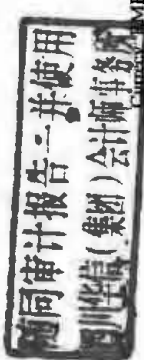 随同审计报告一并使用
四川华信（集团）会计师事务所